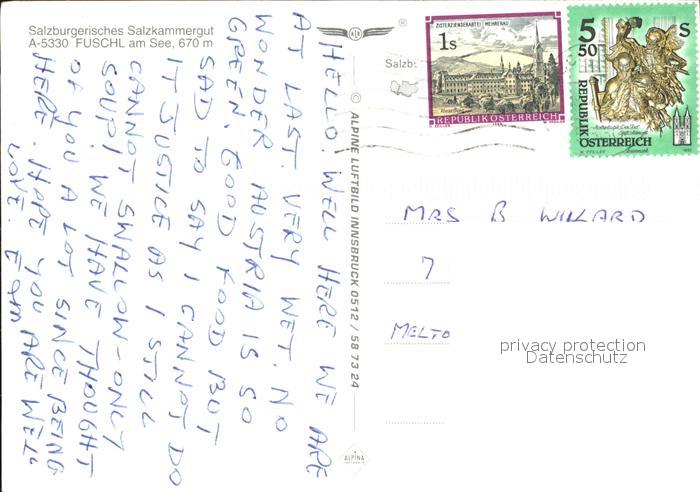 Salzburgerisches Salzkammergut
A-5330 FUSCHL am See, 670 m
HELLO. WELL HERE WE ARE
AT LAST. VERY WET. NO
WONDER AUSTRIA IS SO
GREEN. GOOD FOOD BUT
SAD TO SAY I CANNOT DO
IT JUSTICE AS I STILL
CANNOT SWALLOW - ONLY
SOUP! WE HAVE THOUGHT
OF YOU A LOT SINCE BEING
HERE. HOPE YOU ARE WELL
LOVE.
© ALPINE LUFTBILD INNSBRUCK 0512 / 58 73 24
ALPINA
Salzb
ZISTERZIENSERABTEI MEHRERAU
1s
REPUBLIK ÖSTERREICH
5 50 S
REPUBLIK
ÖSTERREICH
MRS B WILLARD
7
MELTO
privacy protection
Datenschutz